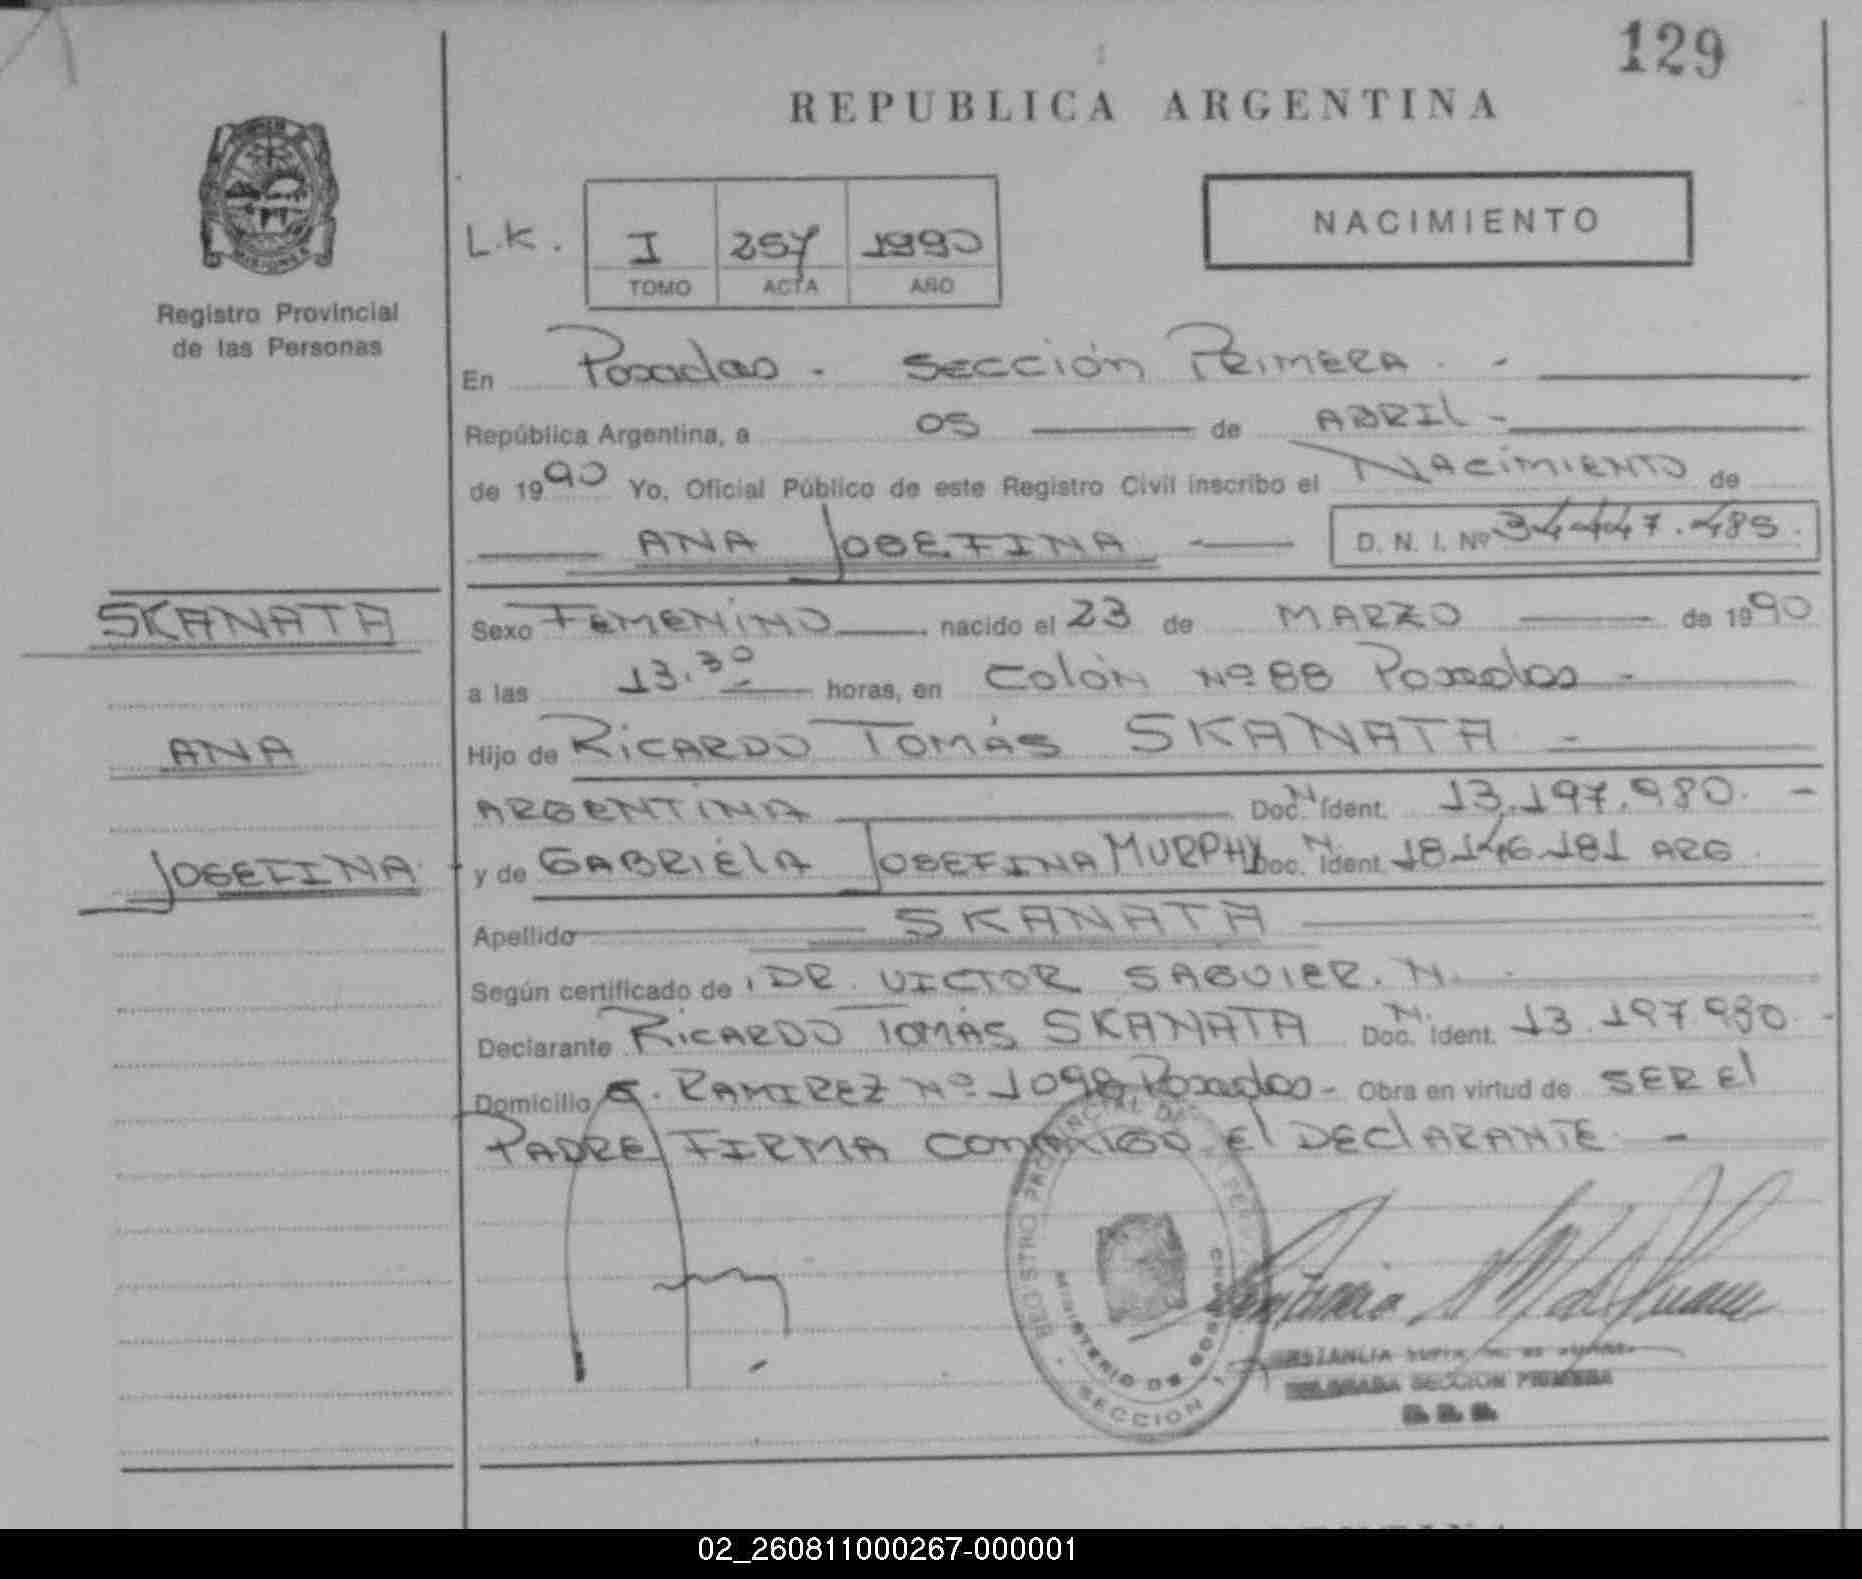 129
REPUBLICA ARGENTINA
NACIMIENTO
L.K. I 257 1990
TOMO ACTA AÑO
Registro Provincial
de las Personas
En Posadas - SECCIÓN PRIMERA. -
República Argentina, a 05 de ABRIL -
de 1990 Yo, Oficial Público de este Registro Civil inscribo el NACIMIENTO de
ANA JOSEFINA D. N. I. Nº 34.447.485.
SKANATA
ANA
JOSEFINA
Sexo FEMENINO nacido el 23 de MARZO de 1990
a las 13.30 horas, en Colón Nº 88 Posadas -
Hijo de RICARDO TOMÁS SKANATA -
ARGENTINA Doc. N. Ident. 13.197.980. -
y de GABRIELA JOSEFINA MURPHY Doc. N. Ident. 18.146.181 ARG
Apellido SKANATA
Según certificado de DR. VICTOR SAGUIER. N.
Declarante RICARDO TOMÁS SKANATA Doc. N. Ident. 13.197.980 -
Domicilio RAMIREZ Nº 1098 Posadas - Obra en virtud de SER El
PADRE FIRMA CONMIGO El DECLARANTE. -
REGISTRO PROVINCIAL DE LAS PERSONAS
MINISTERIO DE GOBIERNO
SECCION 1
DELEGADA SECCION PRIMERA
02_260811000267-000001